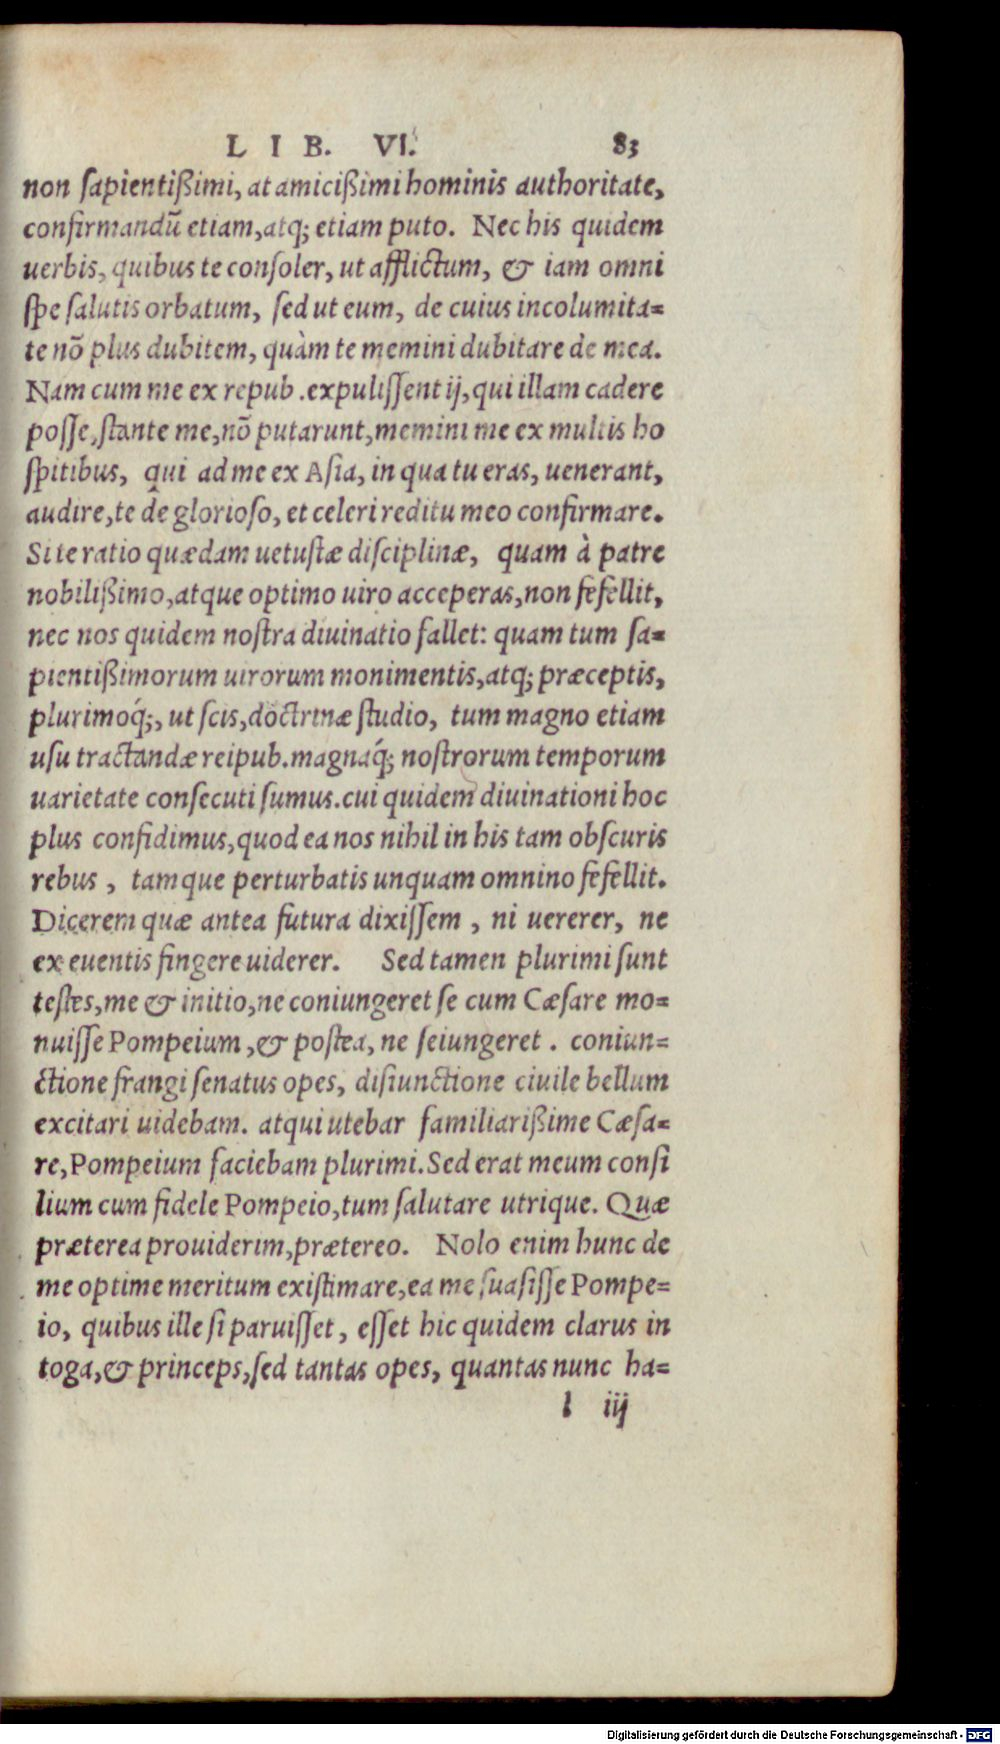 LIB. VI. 83
non ſapientißimi, at amicißimi hominis authoritate,
confirmandũ etiam, atq; etiam puto. Nec his quidem
uerbis, quibus te conſoler, ut afflictum, & iam omni
ſpe ſalutis orbatum, ſed ut eum, de cuius incolumita=
te nõ plus dubitem, quàm te memini dubitare de mea.
Nam cum me ex repub. expuliſſent ij, qui illam cadere
poſſe, ſtante me, nõ putarunt, memini me ex multis ho
ſpitibus, qui ad me ex Aſia, in qua tu eras, uenerant,
audire, te de glorioſo, et celeri reditu meo confirmare.
Si te ratio quædam uetuſtæ diſciplinæ, quam à patre
nobilißimo, atque optimo uiro acceperas, non fefellit,
nec nos quidem noſtra diuinatio fallet: quam tum ſa=
pientißimorum uirorum monimentis, atq; præceptis,
plurimoq́;, ut ſcis, doctrinæ ſtudio, tum magno etiam
uſu tractandæ reipub. magnaq́; noſtrorum temporum
uarietate conſecuti ſumus. cui quidem diuinationi hoc
plus confidimus, quod ea nos nihil in his tam obſcuris
rebus, tamque perturbatis unquam omnino fefellit.
Dicerem quæ antea futura dixiſſem, ni uererer, ne
ex euentis fingere uiderer. Sed tamen plurimi ſunt
teſtes, me & initio, ne coniungeret ſe cum Cæſare mo=
nuiſſe Pompeium, & poſtea, ne ſeiungeret. coniun=
ctione frangi ſenatus opes, diſiunctione ciuile bellum
excitari uidebam. atqui utebar familiarißime Cæſa=
re, Pompeium faciebam plurimi. Sed erat meum conſi
lium cum fidele Pompeio, tum ſalutare utrique. Quæ
præterea prouiderim, prætereo. Nolo enim hunc de
me optime meritum exiſtimare, ea me ſuaſiſſe Pompe=
io, quibus ille ſi paruiſſet, eſſet hic quidem clarus in
toga, & princeps, ſed tantas opes, quantas nunc ha=
l iij
Digitalisierung gefördert durch die Deutsche Forschungsgemeinschaft - DFG